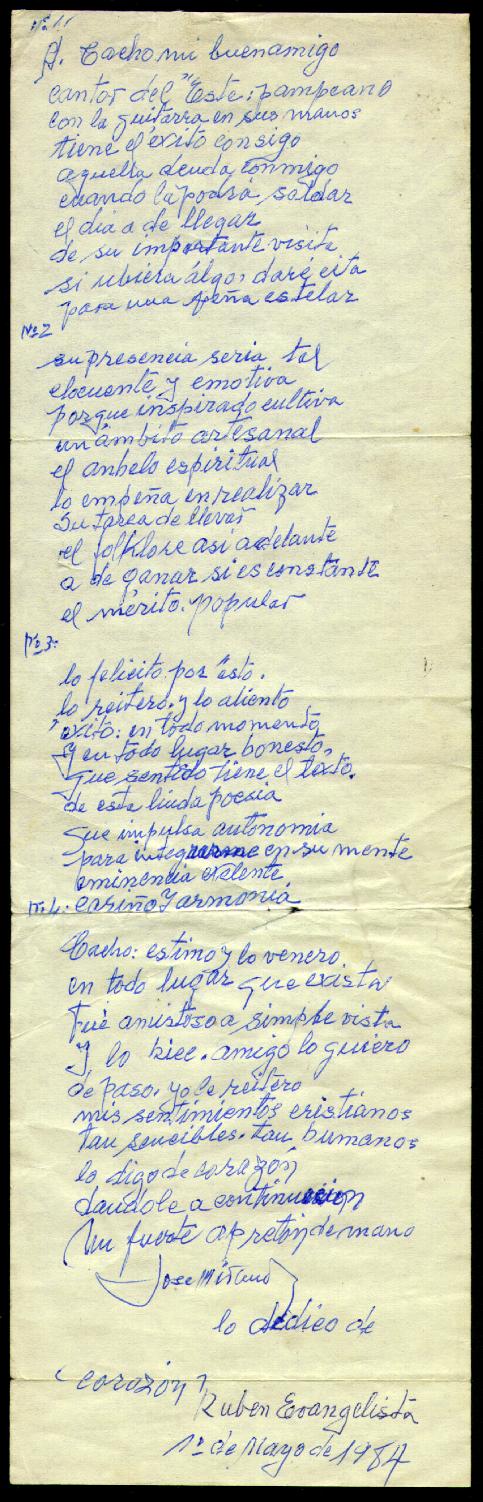 Nº 1.
A. Cacho mi buen amigo
cantor del "Este: pampeano
con la guitarra en sus manos
tiene el éxito consigo
aquella deuda conmigo
cuando la podrá saldar
el dia a de llegar
de su importante visita
si ubiera álgo, daré cita
para una peña estelar
Nº 2
su presencia seria tal
elocuente y emotiva
porque inspirado cultiva
un ámbito artesanal
el anhelo espiritual
lo empeña en realizar
Su tarea de llevar
el folklore asi adelante
a de ganar si es constante
el mérito. popular
Nº 3:
lo felicito por ésto.
lo reitero. y lo aliento
éxito: en todo momento
Y en todo lugar honesto.
que sentido tiene el texto.
de esta linda poesia
que impulsa autonomia
para integrarme en su mente
eminencia exelente
Nº 4: cariño y armonia
Cacho: estimo y lo venero
en todo lugar que exista
fué amistoso a simple vista
Y lo hice. amigo lo quiero
de paso. yo le reitero
mis sentimientos cristianos
tan sencibles. tan humanos
lo digo de corazón
dandole a continuacion
Un fuerte apretón de mano
Jose
lo dedico de
corazón
Ruben Evangelista
1º de Mayo de 1984